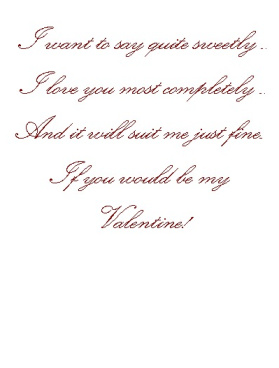 I want to say quite sweetly ..
I love you most completely ..
And it will suit me just fine.
If you would be my
Valentine!